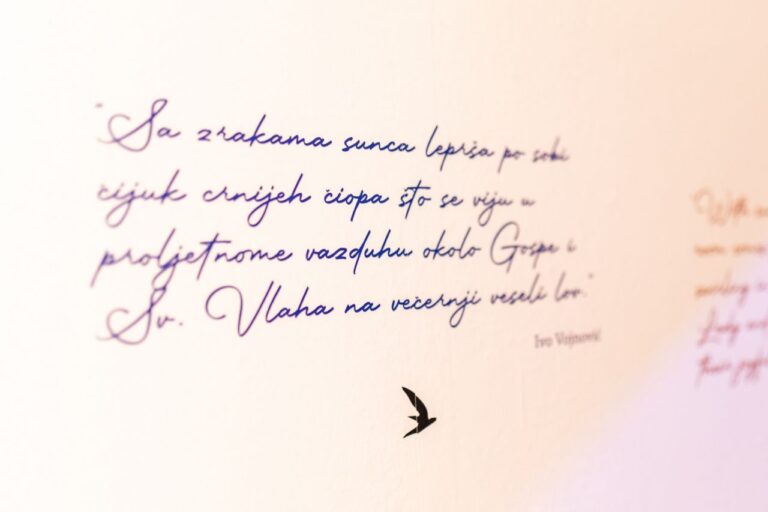 "Sa zrakama sunca leprša po sobi
čijuk crnijeh čiopa što se viju u
proljetnome vazduhu okolo Gospe i
Sv. Vlaha na večernji veseli lov."
Ivo Vojnović
With
Lady